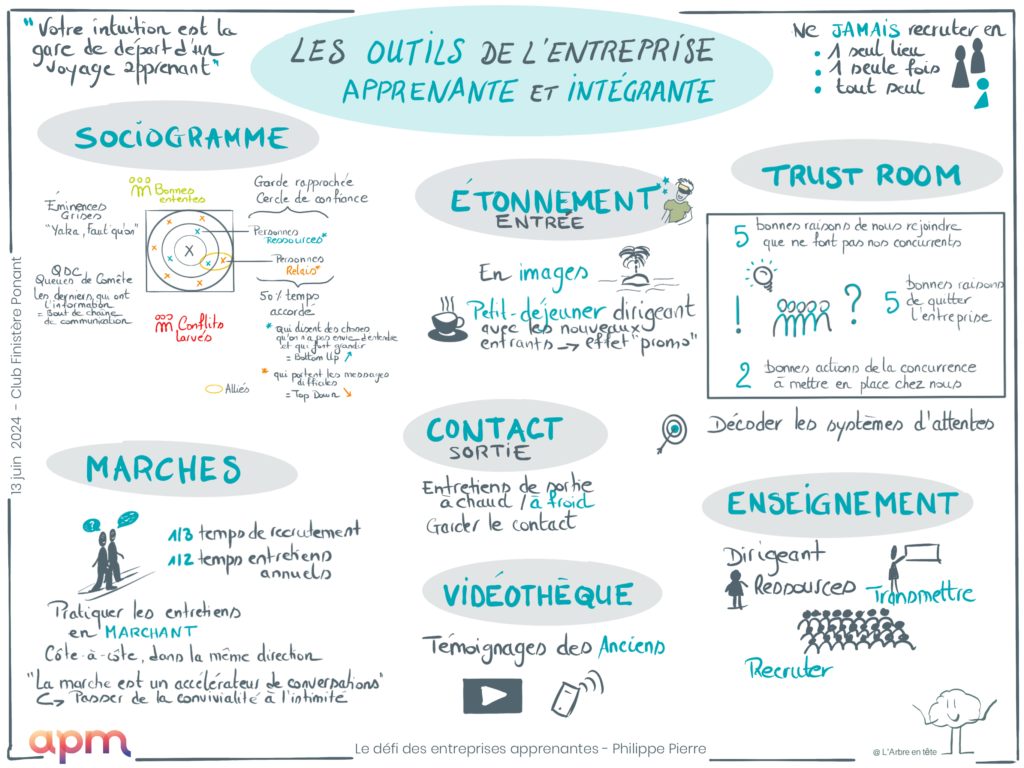 "Votre intuition est la
gare de départ d'un
voyage apprenant"
LES OUTILS DE L'ENTREPRISE
APPRENANTE ET INTÉGRANTE
Ne JAMAIS recruter en
• 1 seul lieu
• 1 seule fois
• tout seul
SOCIOGRAMME
Bonnes
ententes
Éminences
Grises
"Yaka, Faut qu'on"
QDC
Queues de Comète
Les derniers qui ont
l'information
= Bout de chaîne
de communication
X
Conflits
larvés
Garde rapprochée
Cercle de confiance
Personnes
Ressources*
Personnes
Relais*
50% temps
accordé
* qui disent des choses
qu'on n'a pas envie d'entendre
et qui font grandir
= Bottom Up
* qui portent les messages
difficiles
= Top Down
Alliés
ÉTONNEMENT
ENTRÉE
En images
Petit-déjeuner dirigeant
avec les nouveaux
entrants → effet "promo"
TRUST ROOM
5 bonnes raisons de nous rejoindre
que ne font pas nos concurrents
! ?
5 bonnes raisons
de quitter
l'entreprise
2 bonnes actions de la concurrence
à mettre en place chez nous
Décoder les systèmes d'attentes
MARCHES
?
1/3 temps de recrutement
1/2 temps entretiens
annuels
Pratiquer les entretiens
en MARCHANT
Côte-à-côte, dans la même direction
"La marche est un accélérateur de conversations"
↪ Passer de la convivialité à l'intimité
CONTACT
SORTIE
Entretiens de sortie
à chaud / à froid
Garder le contact
VIDÉOTHÈQUE
Témoignages des Anciens
ENSEIGNEMENT
Dirigeant
Ressources
Transmettre
Recruter
13 juin 2024 - Club Finistère Ponant
apm
Le défi des entreprises apprenantes - Philippe Pierre
@ L'Arbre en tête